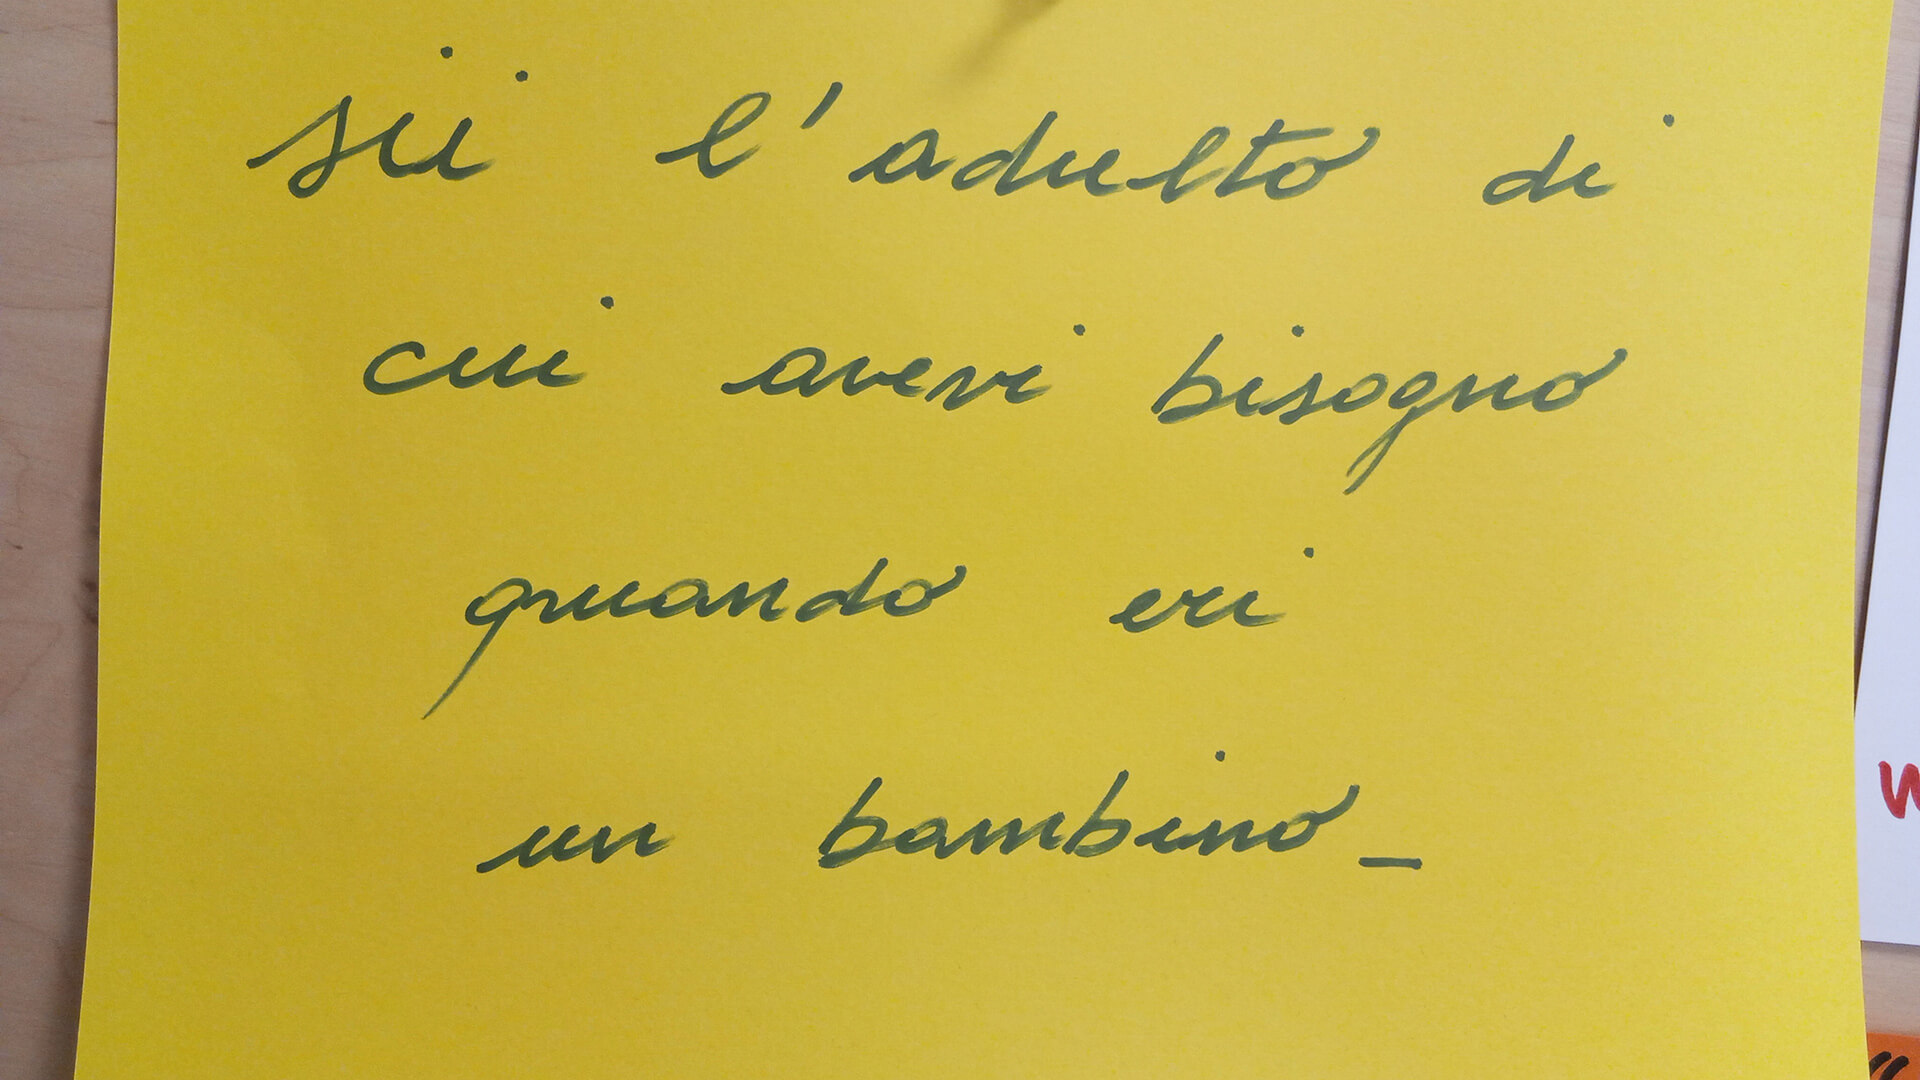 sii l'adulto di
cui avevi bisogno
quando eri
un bambino_